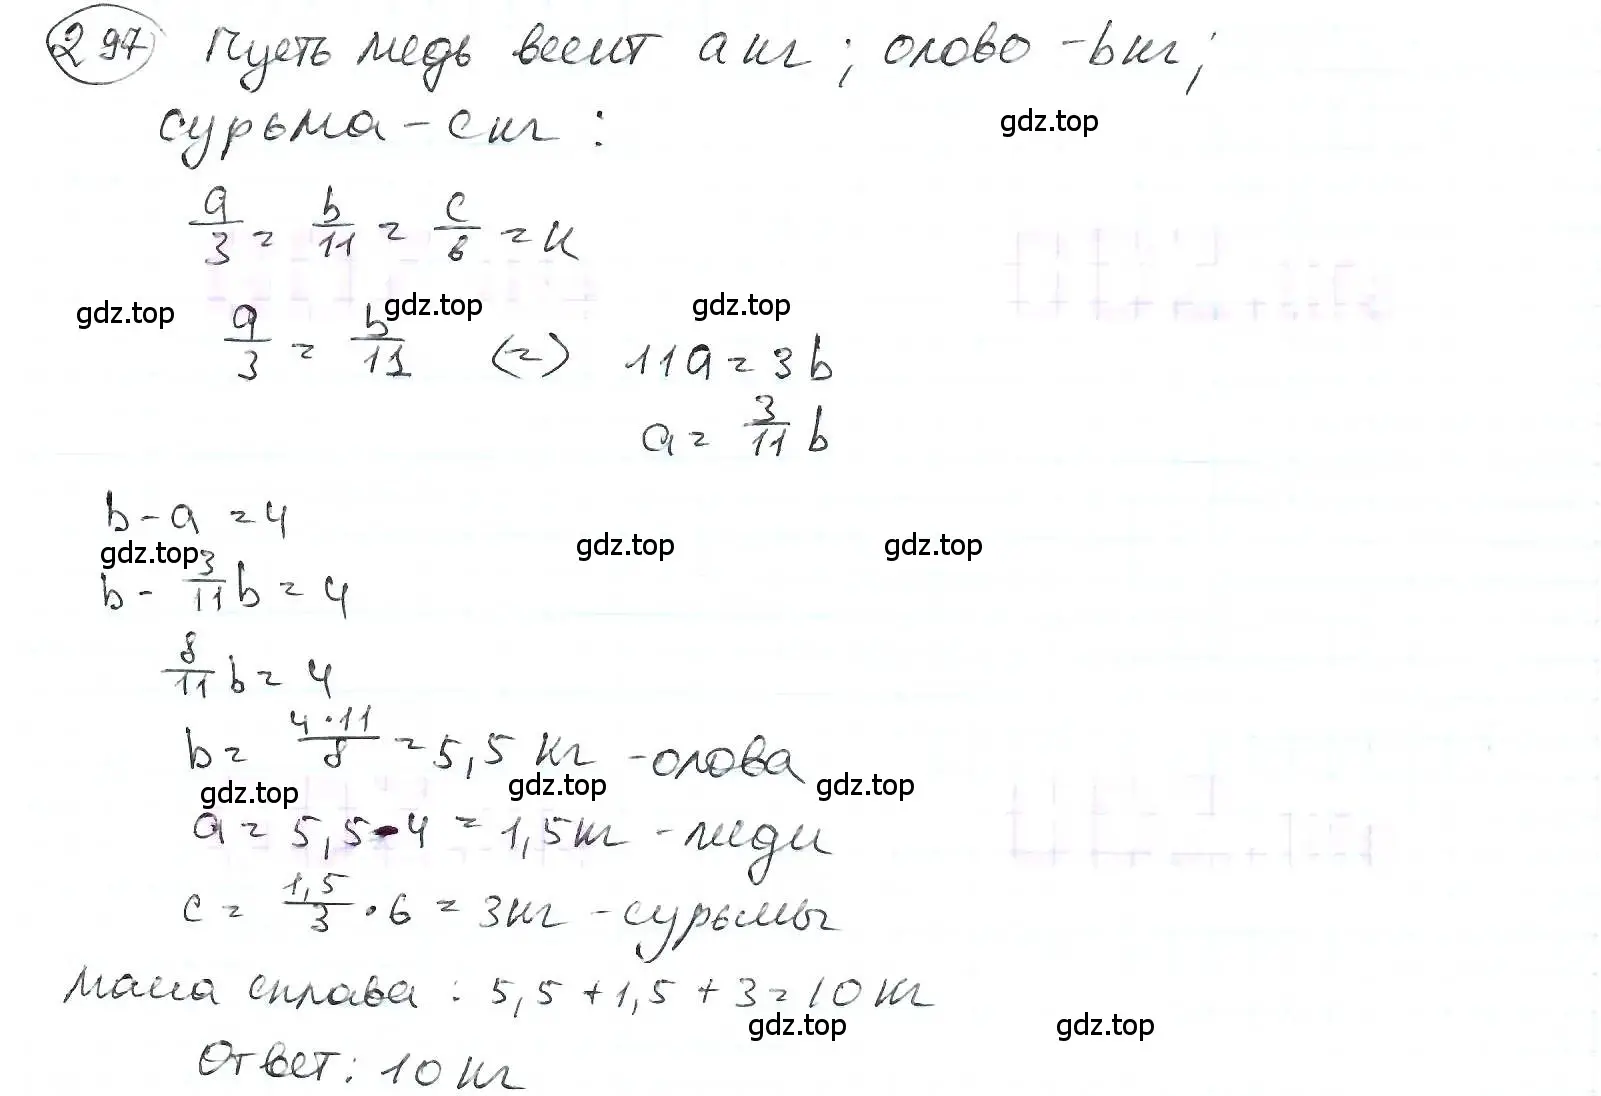 297 Пусть медь весит a кг; олово - b кг;
сурьма - c кг:
a/3 = b/11 = c/6 = к
gdz.top
gdz.top gdz.top gdz.top
a/3 = b/11 (=) 11a = 3b
a = 3/11 b
b - a = 4
gdz.top gdz.top gdz.top
b - 3/11 b = 4
8/11 b = 4
b = 4·11/8 = 5,5 кг - олова
gdz.top gdz.top gdz.top
a = 5,5 - 4 = 1,5 кг - меди
c = 1,5/3 · 6 = 3 кг - сурьмы
Масса сплава: 5,5 + 1,5 + 3 = 10 кг
gdz.top gdz.top
Ответ: 10 кг